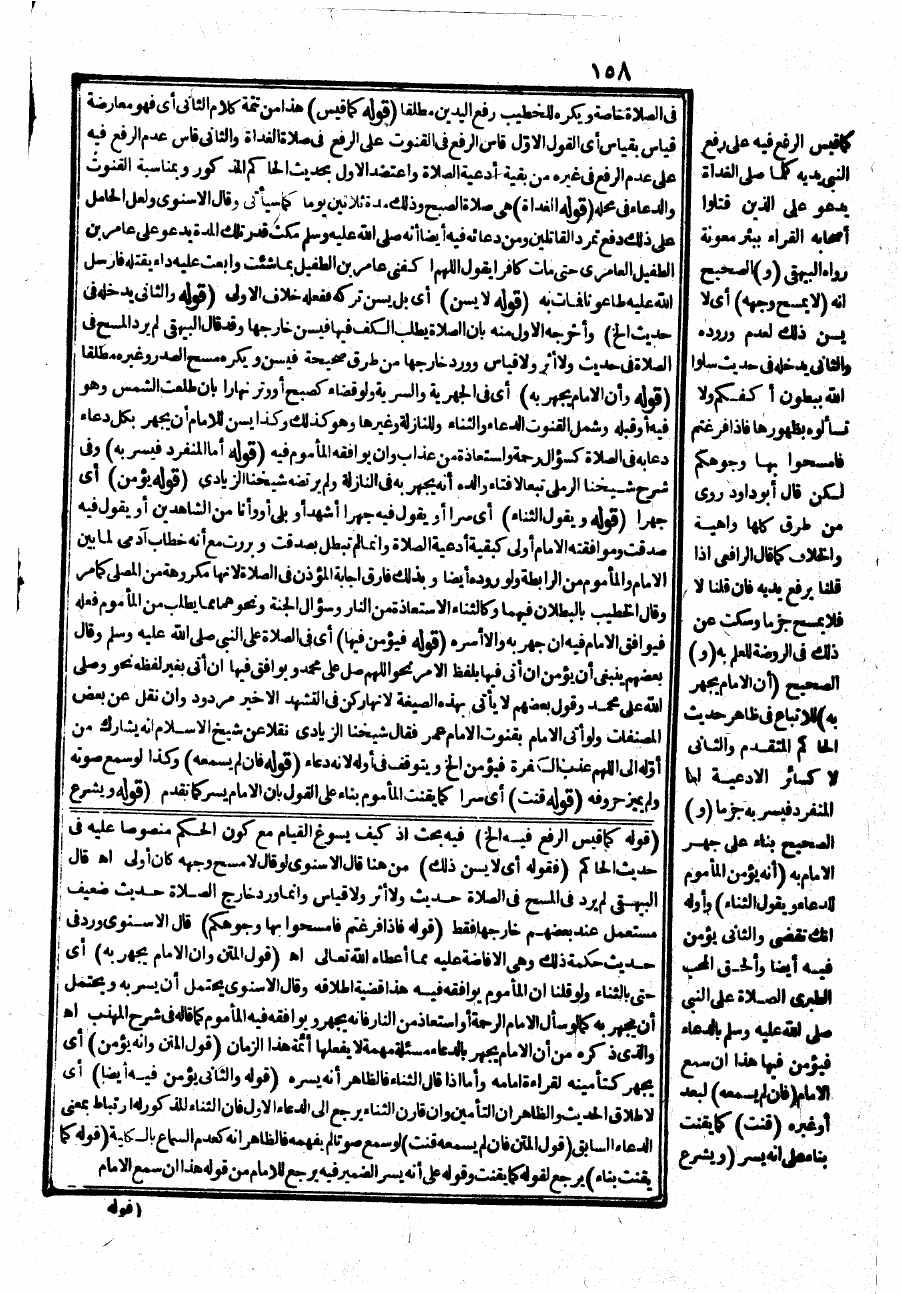 ١٥٨
كما قيس الرفع فيه على رفع
النبي يديه كلما صلى الغداة
يدعو على الذين قتلوا
أصحابه القراء ببئر معونة
رواه البيهقى (و) الصحيح
انه (لا يمسح وجهه) أى لا
يسن ذلك لعدم وروده
والثانى يدخله فى حديث سلوا
الله ببطون أكفكم ولا
تسألوه بظهورها فاذا فرغتم
فامسحوا بها وجوهكم
لكن قال أبو داود روى
من طرق كلها واهية
والخلاف كما قال الرافعى اذا
قلنا يرفع يديه فان قلنا لا
فلا يمسح جزما وسكت عن
ذلك فى الروضة للعلم به (و)
الصحيح (أن الامام يجهر
به) للاتباع فى ظاهر حديث
الحاكم المتقدم والثانى
لا كسائر الادعية أما
المنفرد فيسر به جزما (و)
الصحيح بناء على جهر
الامام به (أنه يؤمن المأموم
للدعاء ويقول الثناء) وأوله
انك تقضى والثانى يؤمن
فيه أيضا وألحق المحب
الطبرى الصلاة على النبى
صلى الله عليه وسلم بالدعاء
فيؤمن فيها هذا ان سمع
الامام (فان لم يسمعه) لبعد
أو غيره (قنت) كما يقنت
بناء على انه يسر (ويشرع
فى الصلاة خاصة ويكره للخطيب رفع اليدين مطلقا (قوله كما قيس) هذا من تتمة كلام الثانى أى فهو معارضة
قياس بقياس أى القول الاول قاس الرفع فى القنوت على الرفع فى صلاة الغداة والثانى قاس عدم الرفع فيه
على عدم الرفع فى غيره من بقية أدعية الصلاة واعتضد الاول بحديث الحاكم المذكور وبمناسبة القنوت
والدعاء فى محله (قوله الغداة) هى صلاة الصبح وذلك مدة ثلاثين يوما كما سيأتى وقال الاسنوى ولعل الحامل
على ذلك دفع تمرد القاتلين ومن دعائه فيه أيضا أنه صلى الله عليه وسلم مكث قدر تلك المدة يدعو على عامر بن
الطفيل العامرى حتى مات كافرا يقول اللهم اكفنى عامر بن الطفيل بما شئت وابعث عليه داء يقتله فارسل
الله عليه طاعونا فمات به (قوله لا يسن) أى بل يسن تركه ففعله خلاف الاولى (قوله والثانى يدخله فى
حديث الخ) وأخرجه الاول منه بان الصلاة يطلب الكف فيها فيسن خارجها وقد قال البيهقى لم يرد المسح فى
الصلاة فى حديث ولا أثر ولا قياس وورد خارجها من طرق صحيحة فيسن ويكره مسح الصدر وغيره مطلقا
(قوله وأن الامام يجهر به) أى فى الجهرية والسرية ولو قضاء كصبح أو وتر نهارا بان طلعت الشمس وهو
فيه أو قبله وشمل القنوت الدعاء والثناء وللنازلة وغيرها وهو كذلك وكذا يسن للامام أن يجهر بكل دعاء
دعا به فى الصلاة كسؤال رحمة واستعاذة من عذاب وان يوافقه المأموم فيه (قوله أما المنفرد فيسر به) وفى
شرح شيخنا الرملى تبعا لافتاء والده أنه يجهر به فى النازلة ولم يرتضه شيخنا الزيادى (قوله يؤمن) أى
جهرا (قوله ويقول الثناء) أى سرا أو يقول فيه جهرا أشهد أو بلى أو وأنا من الشاهدين أو يقول فيه
صدقت وموافقته الامام أولى كبقية أدعية الصلاة وانما لم تبطل بصدقت وبررت مع أنه خطاب آدمى لما بين
الامام والمأموم من الرابطة ولوروده أيضا وبذلك فارق اجابة المؤذن فى الصلاة لانها مكروهة من المصلى كما مر
وقال الخطيب بالبطلان فيهما وكالثناء الاستعاذة من النار وسؤال الجنة ونحوهما مما يطلب من المأموم فعله
فيوافق الامام فيه ان جهر به والا أسره (قوله فيؤمن فيها) أى فى الصلاة على النبى صلى الله عليه وسلم وقال
بعضهم ينبغى أن يؤمن ان أتى فيها بلفظ الامر نحو اللهم صل على محمد ويوافق فيها ان أتى بغير لفظه نحو وصلى
الله على محمد وقول بعضهم لا يأتى بهذه الصيغة لانها ركن فى التشهد الاخير مردود وان نقل عن بعض
المصنفات ولو أتى الامام بقنوت الامام عمر فقال شيخنا الزيادى نقلا عن شيخ الاسلام انه يشارك من
أوله الى اللهم عذب الكفرة فيؤمن الخ ويتوقف فى أوله لانه دعاء (قوله فان لم يسمعه) وكذا لو سمع صوته
ولم يميز حروفه (قوله قنت) أى سرا كما يقنت المأموم بناء على القول بان الامام يسر كما تقدم (قوله ويشرع
(قوله كما قيس الرفع فيه الخ) فيه بحث اذ كيف يسوغ القيام مع كون الحكم منصوصا عليه فى
حديث الحاكم (فقوله أى لا يسن ذلك) من هنا قال الاسنوى لو قال لا مسح وجهه كان أولى اه قال
البيهقى لم يرد فى المسح فى الصلاة حديث ولا أثر ولا قياس وانما ورد خارج الصلاة حديث ضعيف
مستعمل عند بعضهم خارجها فقط (قوله فاذا فرغتم فامسحوا بها وجوهكم) قال الاسنوى ورد فى
حديث حكمة ذلك وهى الافاضة عليه مما أعطاه الله تعالى اه (قول المتن وان الامام يجهر به) أى
حتى بالثناء ولو قلنا ان المأموم يوافقه فيه هذا قضية اطلاقه وقال الاسنوى يحتمل أن يسر به ويحتمل
أن يجهر به كما لو سأل الامام الرحمة أو استعاذ من النار فانه يجهر ويوافقه فيه المأموم كما قاله فى شرح المهذب اه
والذى ذكره من أن الامام يجهر بالدعاء مسئلة مهمة لا يفعلها أئمة هذا الزمان (قول المتن وانه يؤمن) أى
يجهر كتأمينه لقراءة امامه وأما اذا قال الثناء فالظاهر أنه يسره (قوله والثانى يؤمن فيه أيضا) أى
لاطلاق الحديث والظاهر ان التأمين وان قارن الثناء يرجع الى الدعاء الاول فان الثناء للمذكور له ارتباط بمعنى
الدعاء السابق (قول المتن فان لم يسمعه قنت) لو سمع صوتا لم يفهمه فالظاهر انه كعدم السماع بالكلية (قوله كما
يقنت بناء) يرجع لقوله كما يقنت وقوله على أنه يسر الضمير فيه يرجع للامام من قوله هذا ان سمع الامام
(قوله